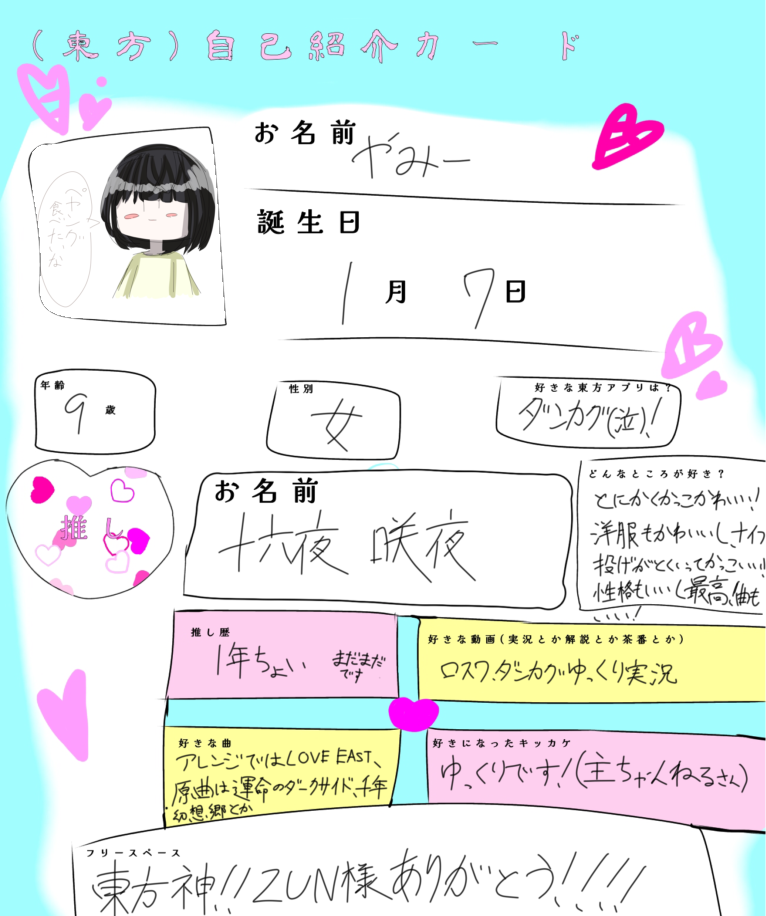 (東方)自己紹介カード
お名前
やみー
ペヤング
食べたいな
誕生日
1月7日
年齢
9歳
性別
女
好きな東方アプリは?
ダンカグ(泣)!
推し
お名前
十六夜 咲夜
どんなところが好き?
とにかくかっこかわいい!
洋服もかわいいし、ナイフ
投げがとくいってかっこいい!
性格もいいし最高、曲も
いい!
推し歴
1年ちょい まだまだ
です
好きな動画(実況とか解説とか茶番とか)
ロスワ、ダンカグゆっくり実況
好きな曲
アレンジではLOVE EAST、
原曲は運命のダークサイド、千年
幻想郷とか
好きになったキッカケ
ゆっくりです!(主ちゃんねるさん)
フリースペース
東方神!!ZUN様ありがとう!!!!